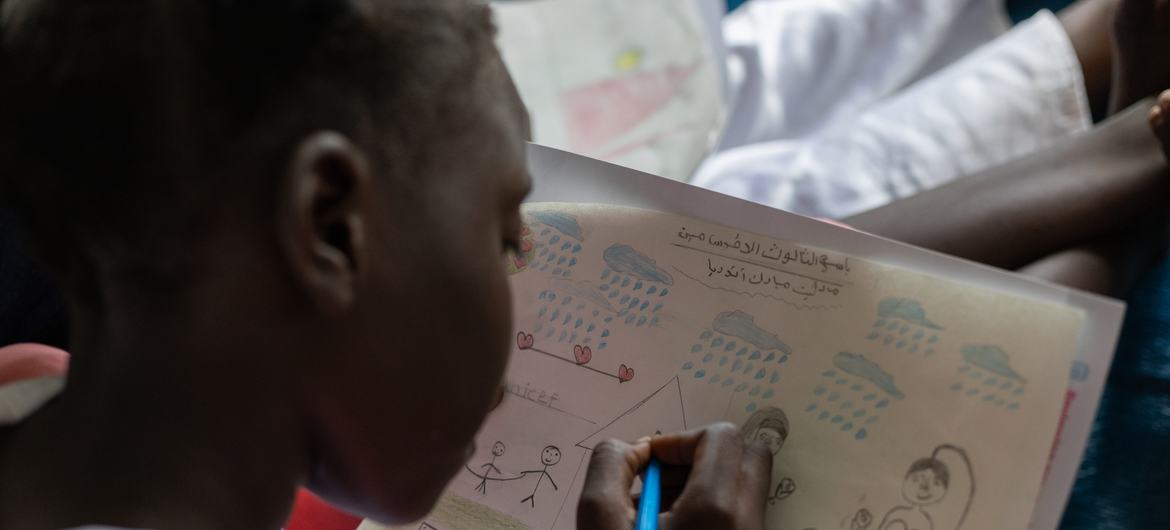 باسم الثالوث الاقدس امين
مدلين مبارك أندريا
unicef